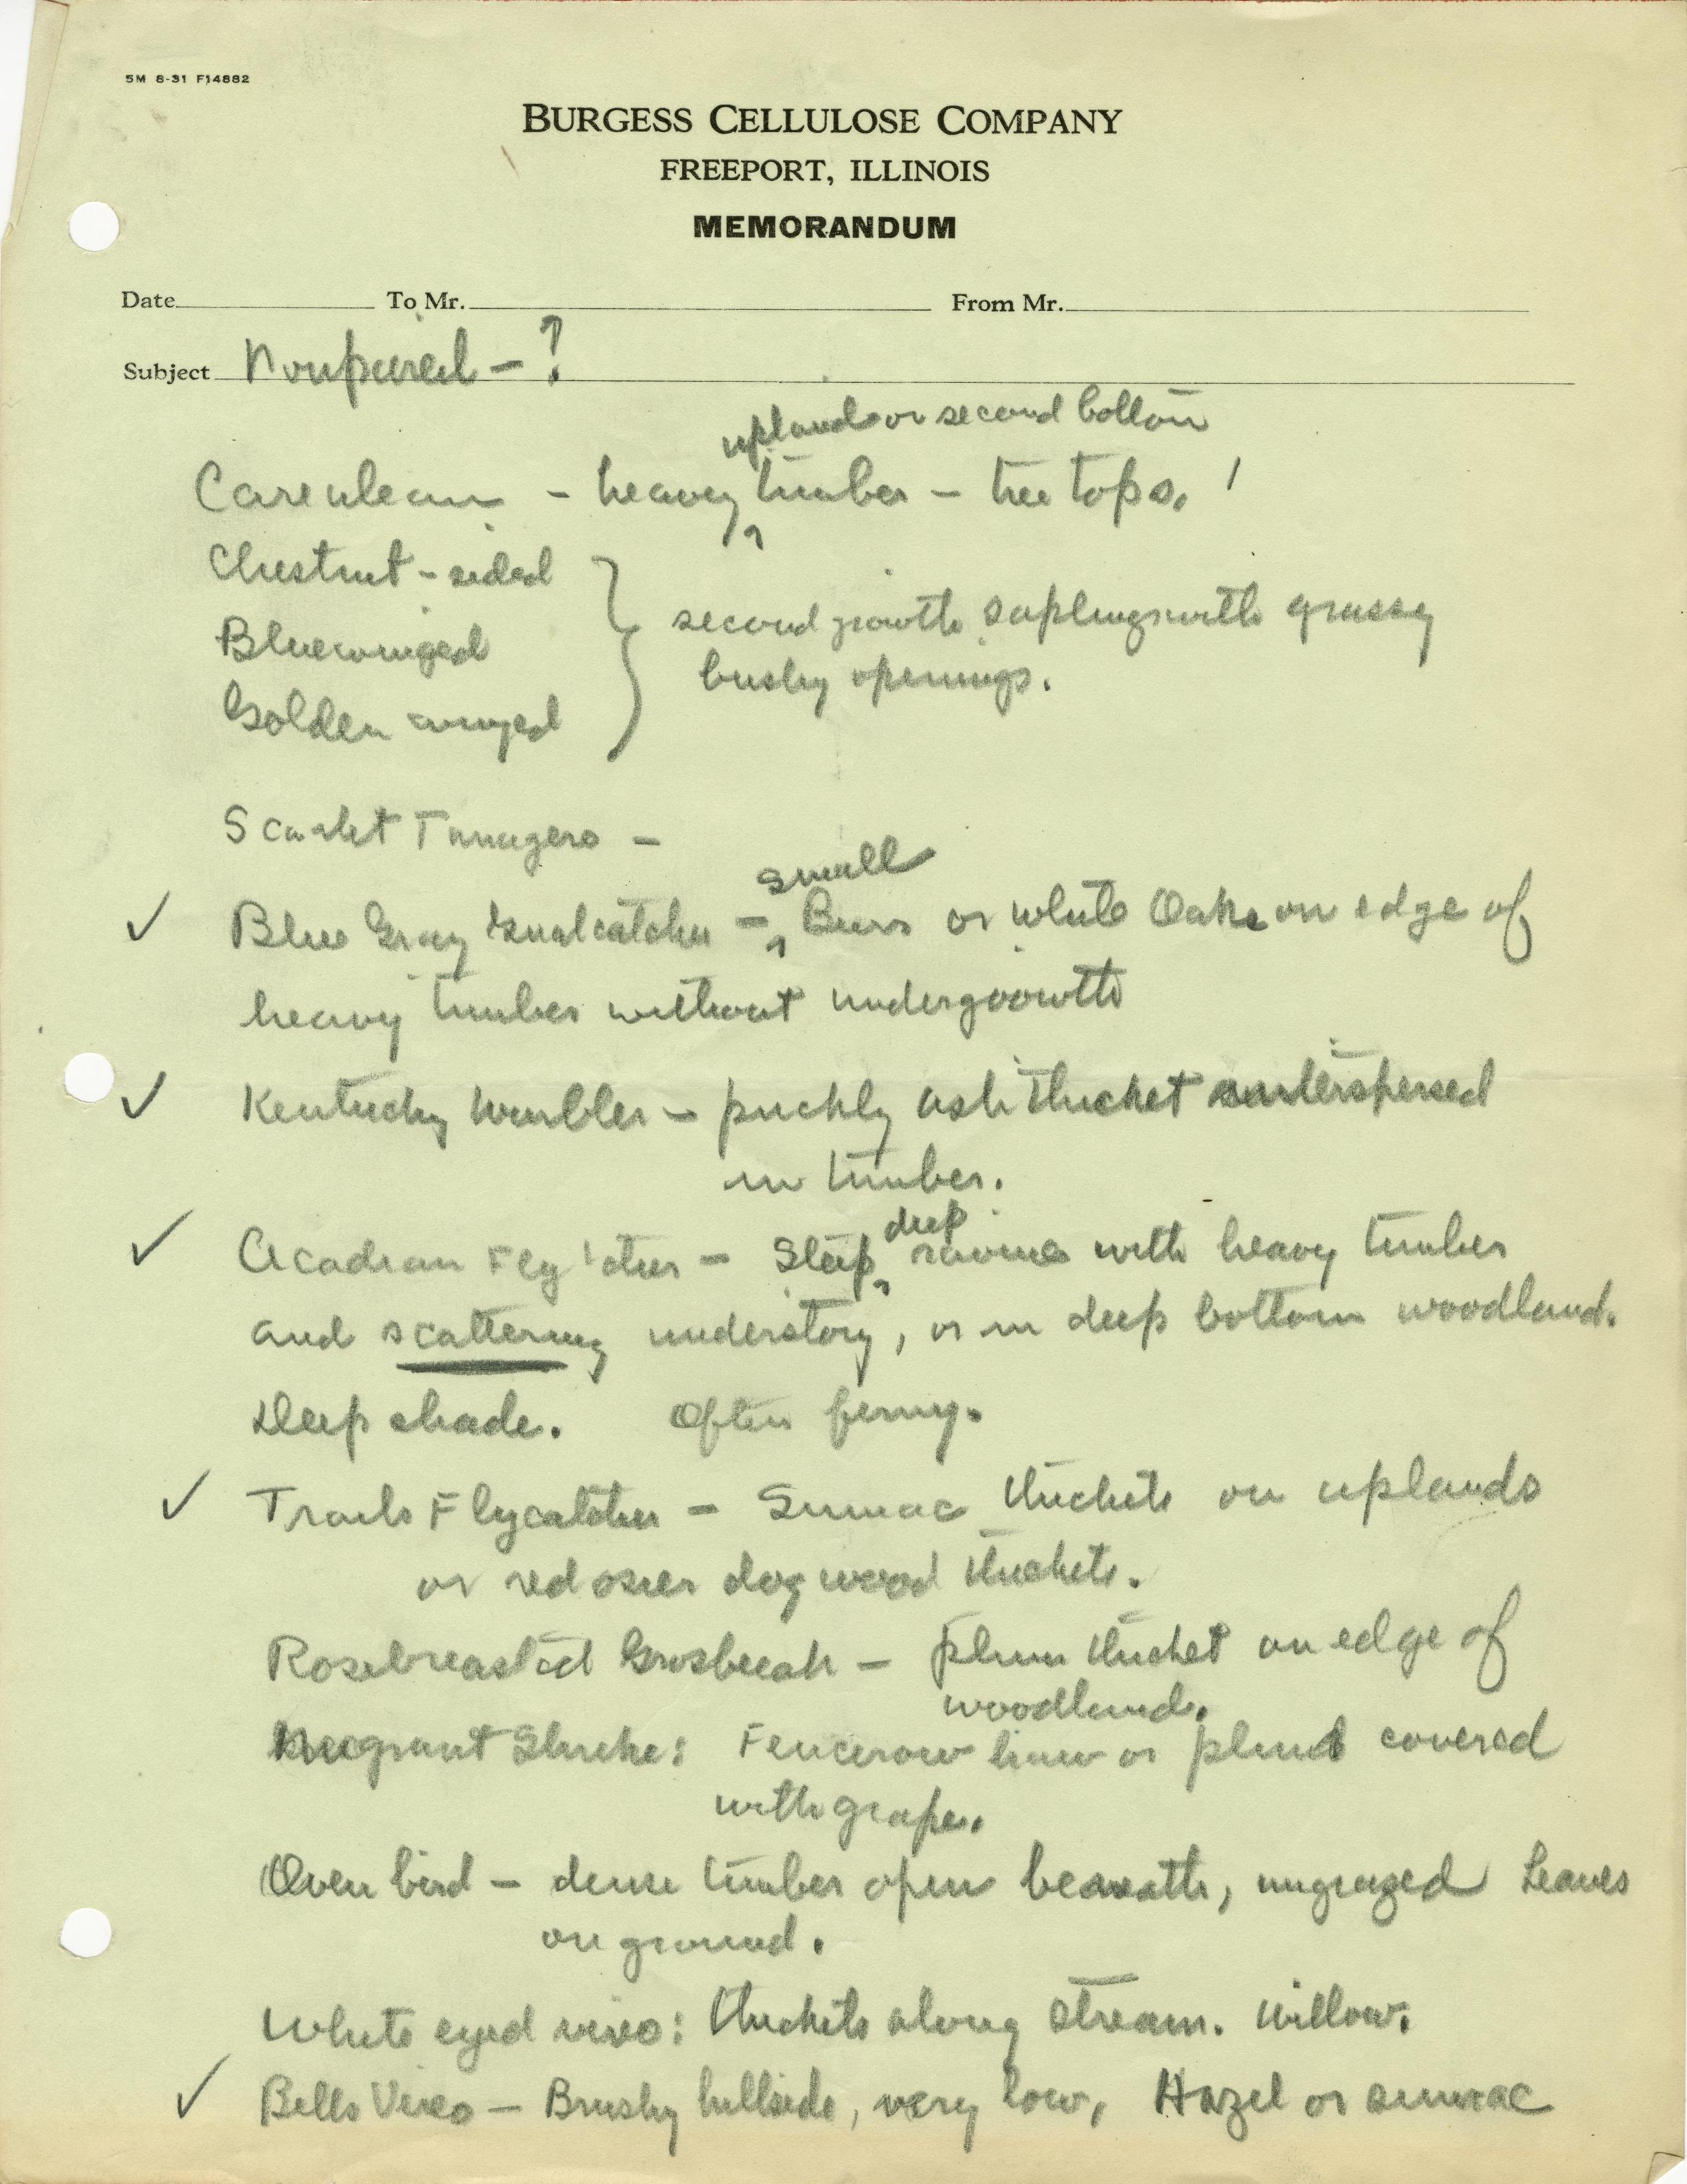 5M 8-31 F14882
BURGESS CELLULOSE COMPANY
FREEPORT, ILLINOIS
MEMORANDUM
Date To Mr. From Mr.
Subject Nonpareil - ?
upland or second bottom
Careulean - heavy ^ timber - tree tops.
Chestnut-sided
Bluewinged
Golden winged
second growth saplings with grassy
bushy openings.
Scarlet Tanagers -
small
✓ Blue Gray Gnatcatcher - ^ Burr or white Oaks on edge of
heavy timber without undergrowth
✓ Kentucky Warbler - prickly ash thicket interspersed
in timber.
deep
✓ Acadian Fly'ctcher - Steep ^ ravines with heavy timber
and scattering understory, or in deep bottom woodland.
Deep shade. Often ferny.
✓ Trails Flycatcher - Sumac thickets on uplands
or red osier dogwood thickets.
Rosebreasted Grosbeak - plum thicket on edge of
woodland.
Migrant Shrike: Fencerow haw or plum covered
with grape.
Oven bird - dense timber open beneath, ungrazed leaves
on ground.
White eyed vireo: thickets along stream. Willow.
✓ Bells Vireo - Brushy hillside, very low, Hazel or sumac